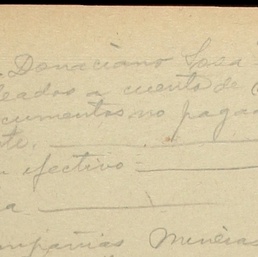 Donaciano Sosa
leados a cuenta de
cumentos no pagad
te.
efectivo
a
ompañias Mineras